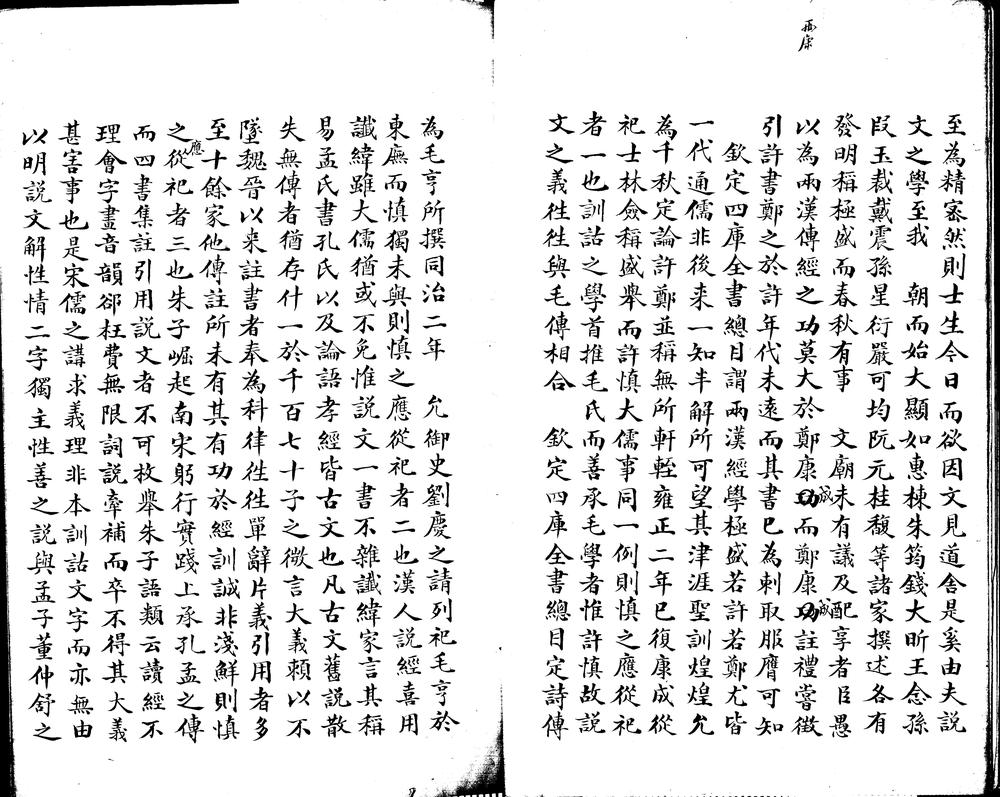 至為精審然則士生今日而欲因文見道舍是奚由夫説
文之學至我　朝而始大顯如惠棟朱筠錢大昕王念孫
段玉裁戴震孫星衍嚴可均阮元桂馥等諸家撰述各有
發明稱極盛而春秋有事　文廟未有議及配享者臣愚
以為兩漢傳經之功莫大於鄭康成而鄭康成註禮嘗徵
引許書鄭之於許年代未遠而其書已為刺取服膺可知
欽定四庫全書總目謂兩漢經學極盛若許若鄭尤皆
一代通儒非後来一知半解所可望其津涯聖訓煌煌允
為千秋定論許鄭並稱無所軒輊雍正二年已復康成從
祀士林僉稱盛舉而許慎大儒事同一例則慎之應從祀
者一也訓詁之學首推毛氏而善承毛學者惟許慎故説
文之義徃徃與毛傳相合　欽定四庫全書總目定詩傳
為毛亨所撰同治二年　允御史劉慶之請列祀毛亨於
東廡而慎獨未與則慎之應從祀者二也漢人説經喜用
讖緯雖大儒猶或不免惟説文一書不雜讖緯家言其稱
易孟氏書孔氏以及論語孝經皆古文也凡古文舊説散
失無傳者猶存什一於千百七十子之微言大義賴以不
墜魏晉以来註書者奉為科律徃徃單辭片義引用者多
至十餘家他傳註所未有其有功於經訓誠非淺鮮則慎
之應從祀者三也朱子崛起南宋躬行實踐上承孔孟之傳
而四書集註引用説文者不可枚舉朱子語類云讀經不
理會字畫音韻卻枉費無限詞説牽補而卒不得其大義
甚害事也是宋儒之講求義理非本訓詁文字而亦無由
以明説文解性情二字獨主性善之説與孟子董仲舒之